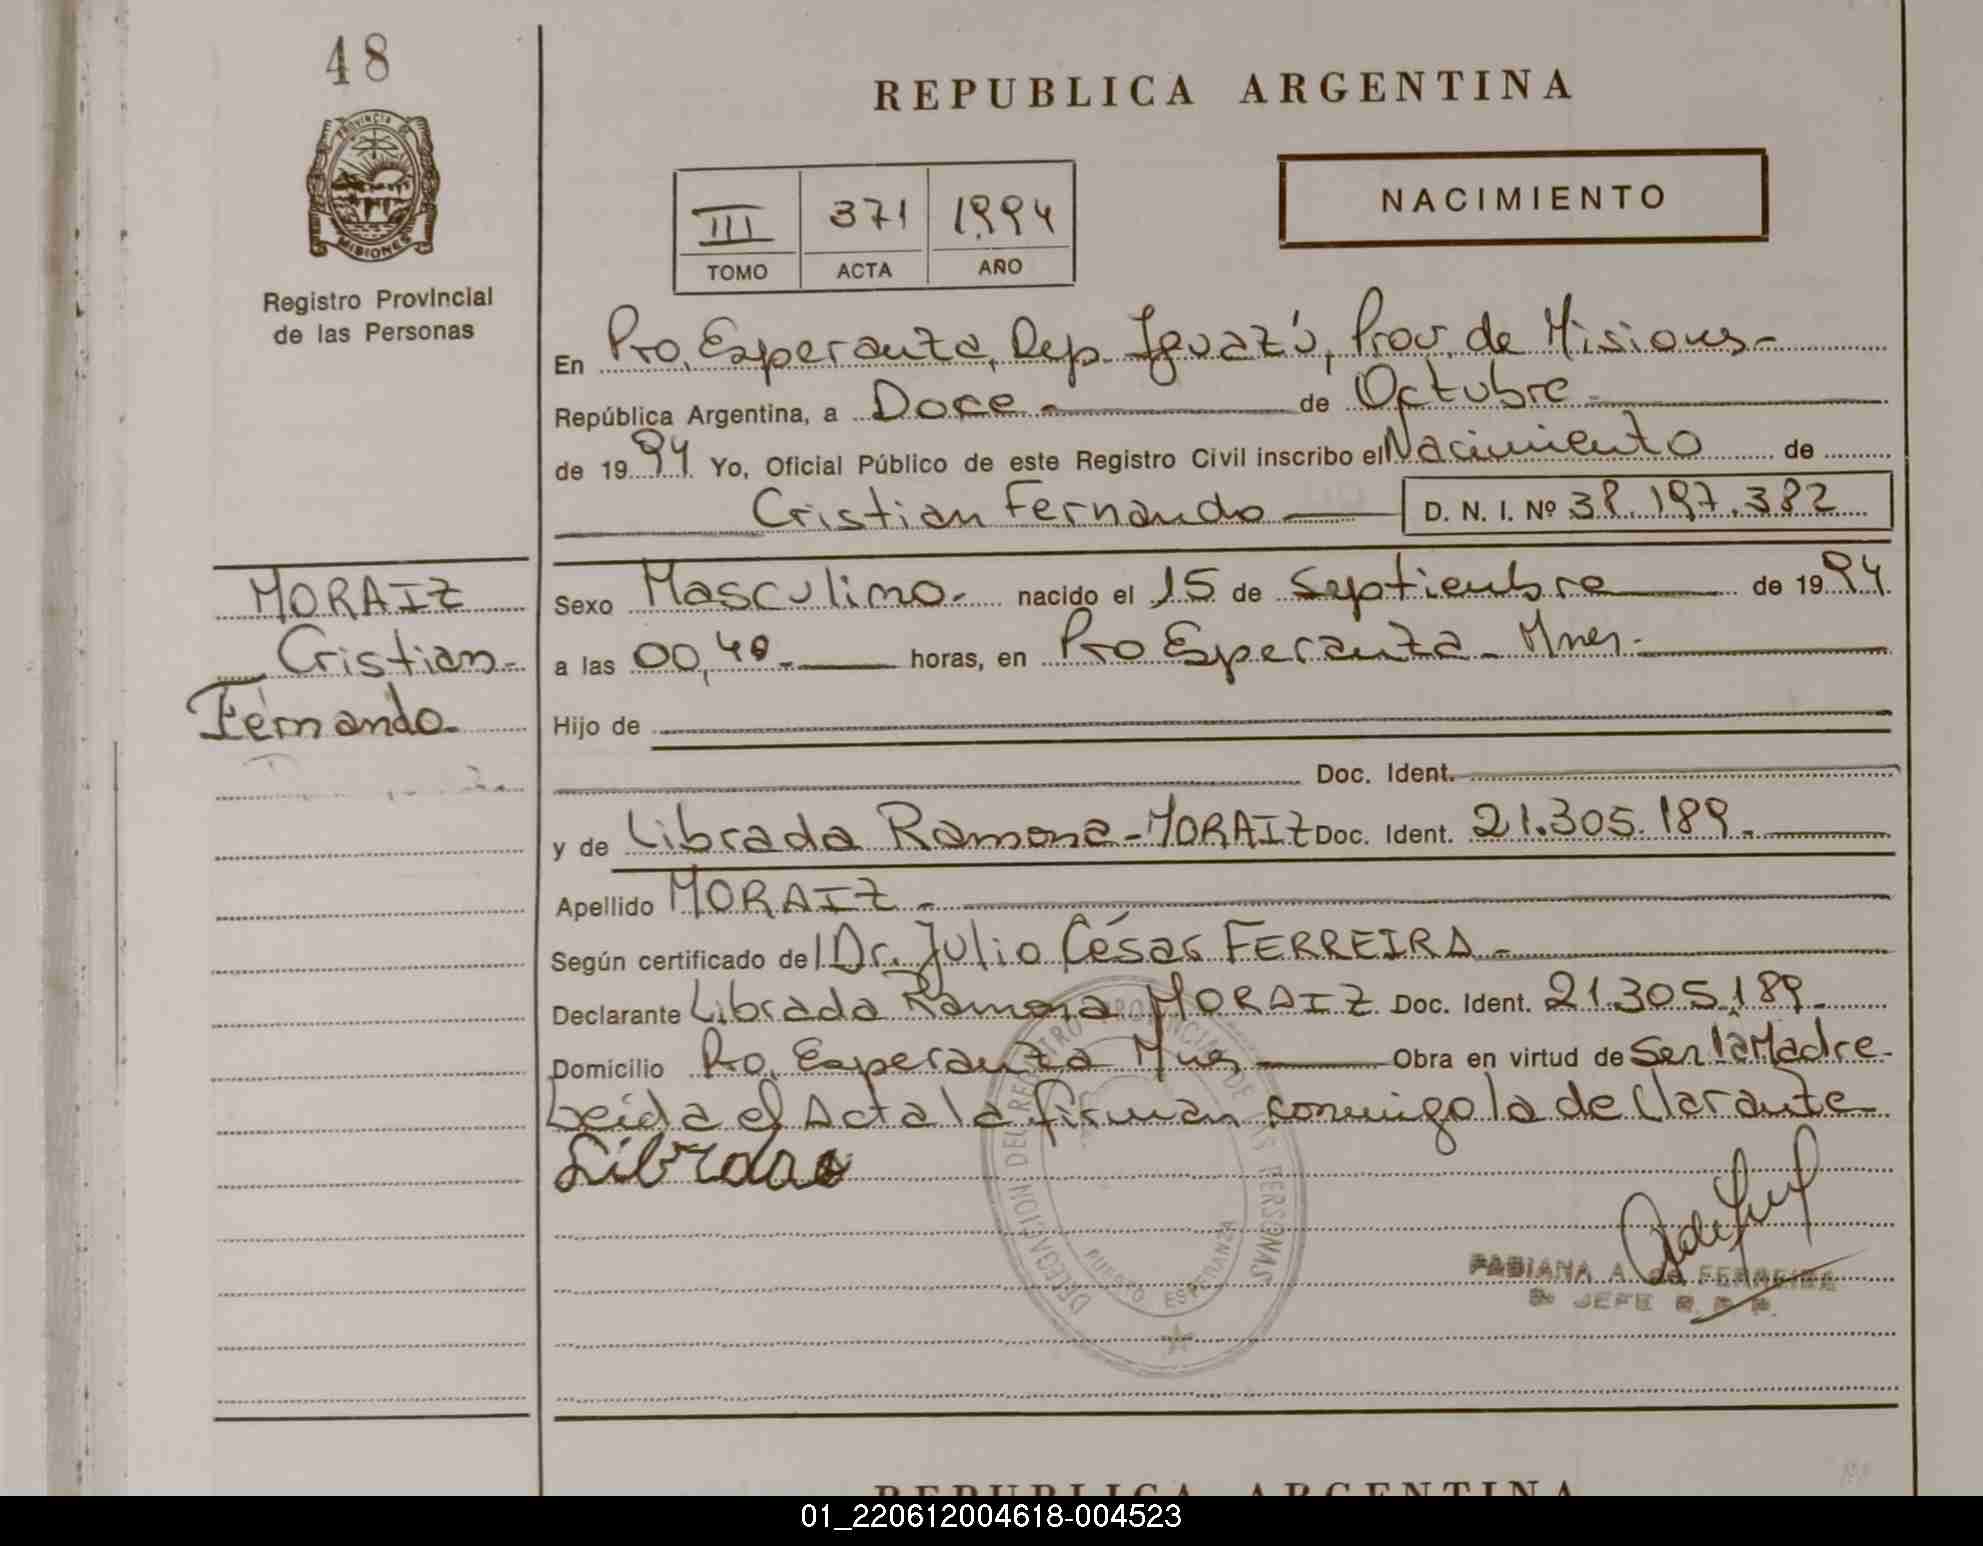 48
PROVINCIA DE
MISIONES
Registro Provincial
de las Personas
REPUBLICA ARGENTINA
NACIMIENTO
III 371 1994
TOMO ACTA AÑO
En Pto. Esperanza, Dep. Iguazú, Prov. de Misiones-
República Argentina, a Doce - de Octubre -
de 1994 Yo, Oficial Público de este Registro Civil inscribo el Nacimiento de
Cristian Fernando D. N. I. Nº 38.197.382
MORAIZ
Cristian-
Fernando-
Sexo Masculino.- nacido el 15 de Septiembre de 1994.
a las 00,40.- horas, en Pto Esperanza - Mnes.-
Hijo de
Doc. Ident.
y de Librada Ramona - MORAIZ Doc. Ident. 21.305.189.-
Apellido MORAIZ -
Según certificado del Dr. Julio César FERREIRA -
Declarante Librada Ramona MORAIZ Doc. Ident. 21.305.189.
Domicilio Pto. Esperanza Mnes Obra en virtud de Ser la Madre-
Leida el Acta la firman conmigo la declarante
Librada
DELEGACION DEL REGISTRO PROVINCIAL DE LAS PERSONAS
PUERTO ESPERANZA
FABIANA A. de FERREIRA
JEFE R. P. P.
REPUBLICA ARGENTINA
01_220612004618-004523